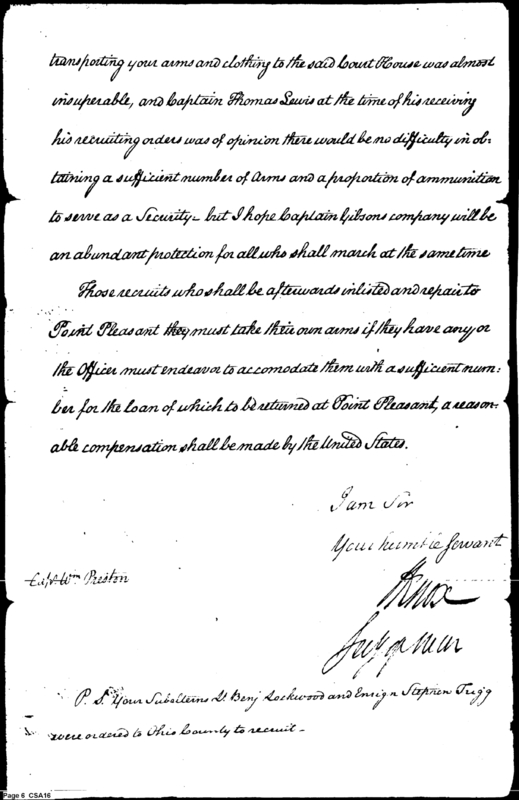 transporting your arms and clothing to the said Court House was almost
insuperable, and Captain Thomas Lewis at the time of his receiving
his recruiting orders was of opinion there would be no difficulty in ob:
taining a sufficient number of Arms and a proportion of ammunition
to serve as a Security – but I hope Captain Gibsons company will be
an abundant protection for all who shall march at the same time
Those recruits who shall be afterwards inlisted and repair to
Point Pleasant they must take their own arms if they have any or
the Officer must endeavor to accomodate them with a sufficient num:
ber for the loan of which to be returned at Point Pleasant, a reason:
able compensation shall be made by the United States.
I am Sir
Your humble Servant
HKnox
Secy of War
Capt Wm Preston
P. S. Your Subalterns Lt Benj Lockwood and Ensign Stephen Trigg
were ordered to Ohio County to recruit –
Page 6 CSA16